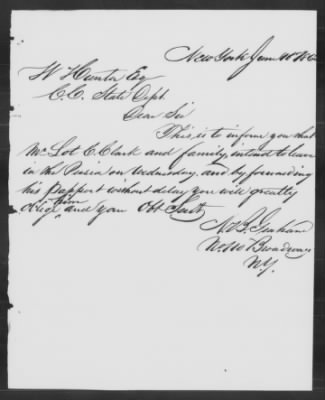 New York June
W Hunter Esq
C.C. State Dept.
Dear Sir
This is to inform you that
Mr Lot C. Clark and family, intend to leave
in the Persia on Wednesday, and by forwarding
his passport without delay you will greatly
oblige him and your Obt Servt
A. B.
Broadway
N.Y.